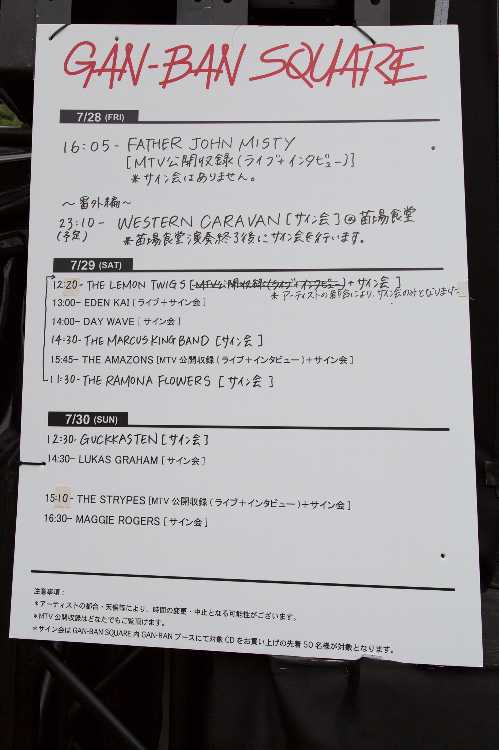 GAN-BAN SQUARE
7/28 (FRI)
16:05- FATHER JOHN MISTY
[MTV公開収録(ライブ+インタビュー)]
*サイン会はありません。
〜番外編〜
23:10- WESTERN CARAVAN [サイン会] @苗場食堂
(予定) *苗場食堂演奏終了後にサイン会を行います。
7/29 (SAT)
12:20- THE LEMON TWIGS [MTV公開収録(ライブ+インタビュー)+サイン会 ]
*アーティストの都合により、サイン会のみとなります
13:00- EDEN KAI [ライブ+サイン会]
14:00- DAY WAVE [ サイン会 ]
14:30- THE MARCUS KING BAND [サイン会 ]
15:45- THE AMAZONS [MTV 公開収録 (ライブ+インタビュー)+サイン会 ]
11:30- THE RAMONA FLOWERS [ サイン会 ]
7/30 (SUN)
12:30- GUCKKASTEN [サイン会 ]
14:30- LUKAS GRAHAM [サイン会 ]
15:10- THE STRYPES [MTV 公開収録 (ライブ+インタビュー)+サイン会 ]
16:30- MAGGIE ROGERS [サイン会 ]
注意事項:
*アーティストの都合・天候等により、時間の変更・中止となる可能性がございます。
*MTV 公開収録はどなたでもご覧頂けます。
*サイン会は GAN-BAN SQUARE 内 GAN-BAN ブースにて対象 CD をお買い上げの先着 50 名様が対象となります。